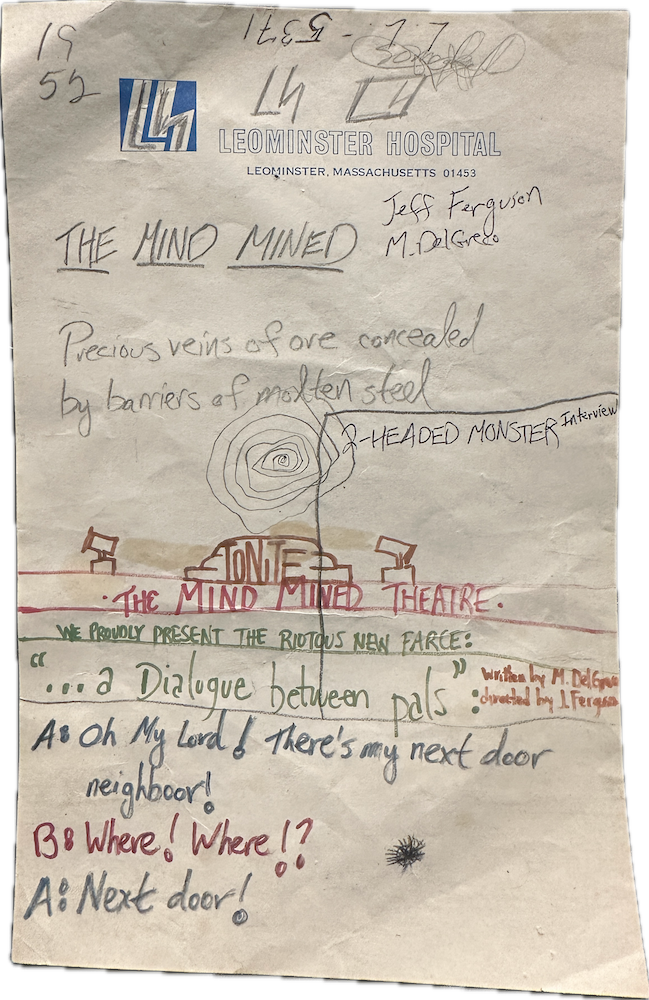 19
52
L.L. - 5371
LH
LH LH
LEOMINSTER HOSPITAL
LEOMINSTER, MASSACHUSETTS 01453
Jeff Ferguson
M. DelGreco
THE MIND MINED
Precious veins of ore concealed
by barriers of molten steel
2-HEADED MONSTER Interview
TONITE
· THE MIND MINED THEATRE ·
WE PROUDLY PRESENT THE RIOTOUS NEW FARCE:
"...a Dialogue between pals":
written by M. DelGreco
directed by J. Ferguso
A: Oh My Lord! There's my next door
neighboor!
B: Where! Where!?
A: Next door!